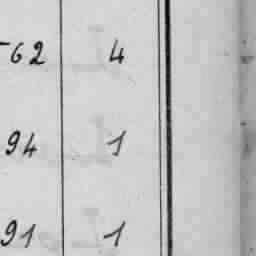 62 4
94 1
91 1